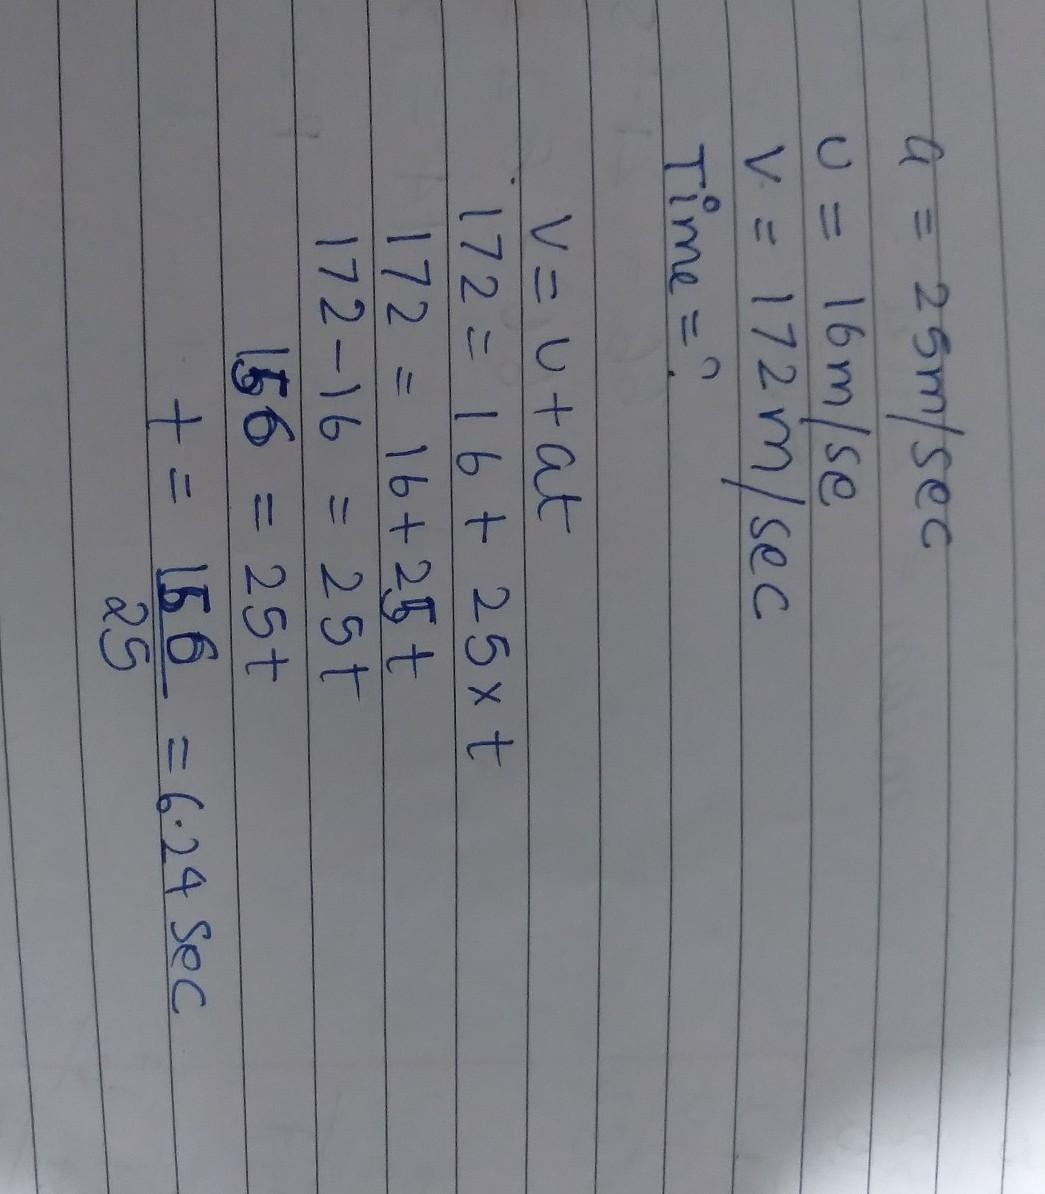 a = 25m/sec
u = 16m/se
v = 172m/sec
Time = ?
v = u + at
172 = 16 + 25 x t
172 = 16 + 25t
172 - 16 = 25t
156 = 25t
t = 156/25 = 6.24 sec